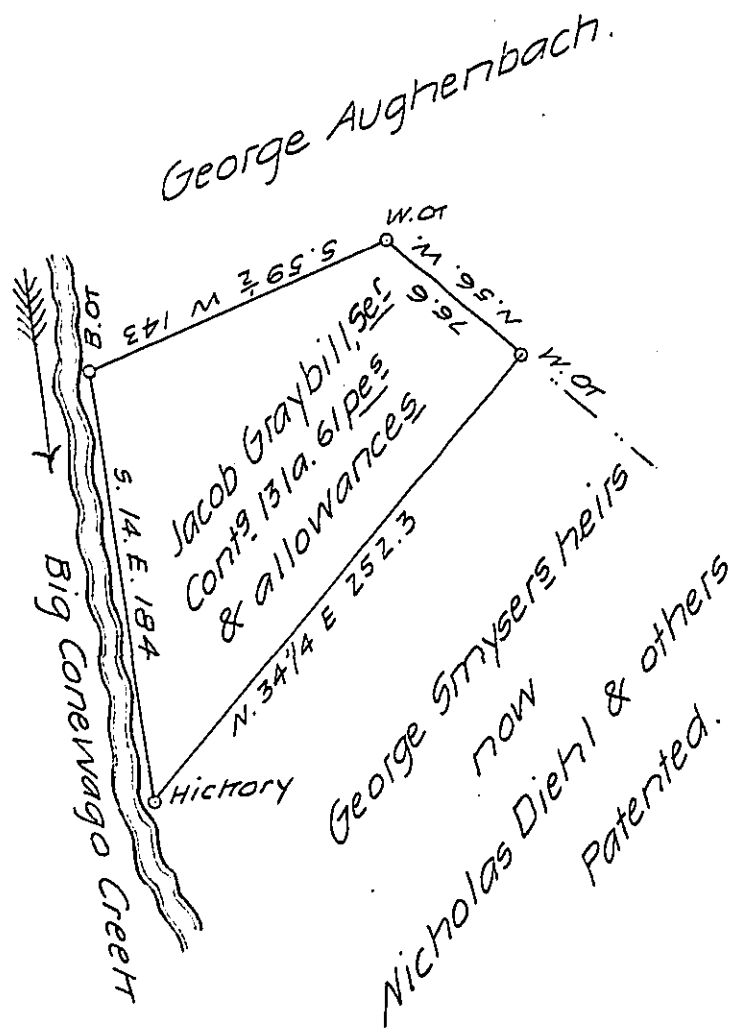 George Aughenbach.
W.OT
S. 59 ½ W 143
N. 56. W.
76.6
B.OT
W.OT
Jacob Graybill, Ser
Contg 131a. 61 pes
& allowances
S. 14. E. 184
N. 34 1/4 E 252.3
Hickory
Big Conewago Creek
George Smysers heirs
now
Nicholas Diehl & others
Patented.